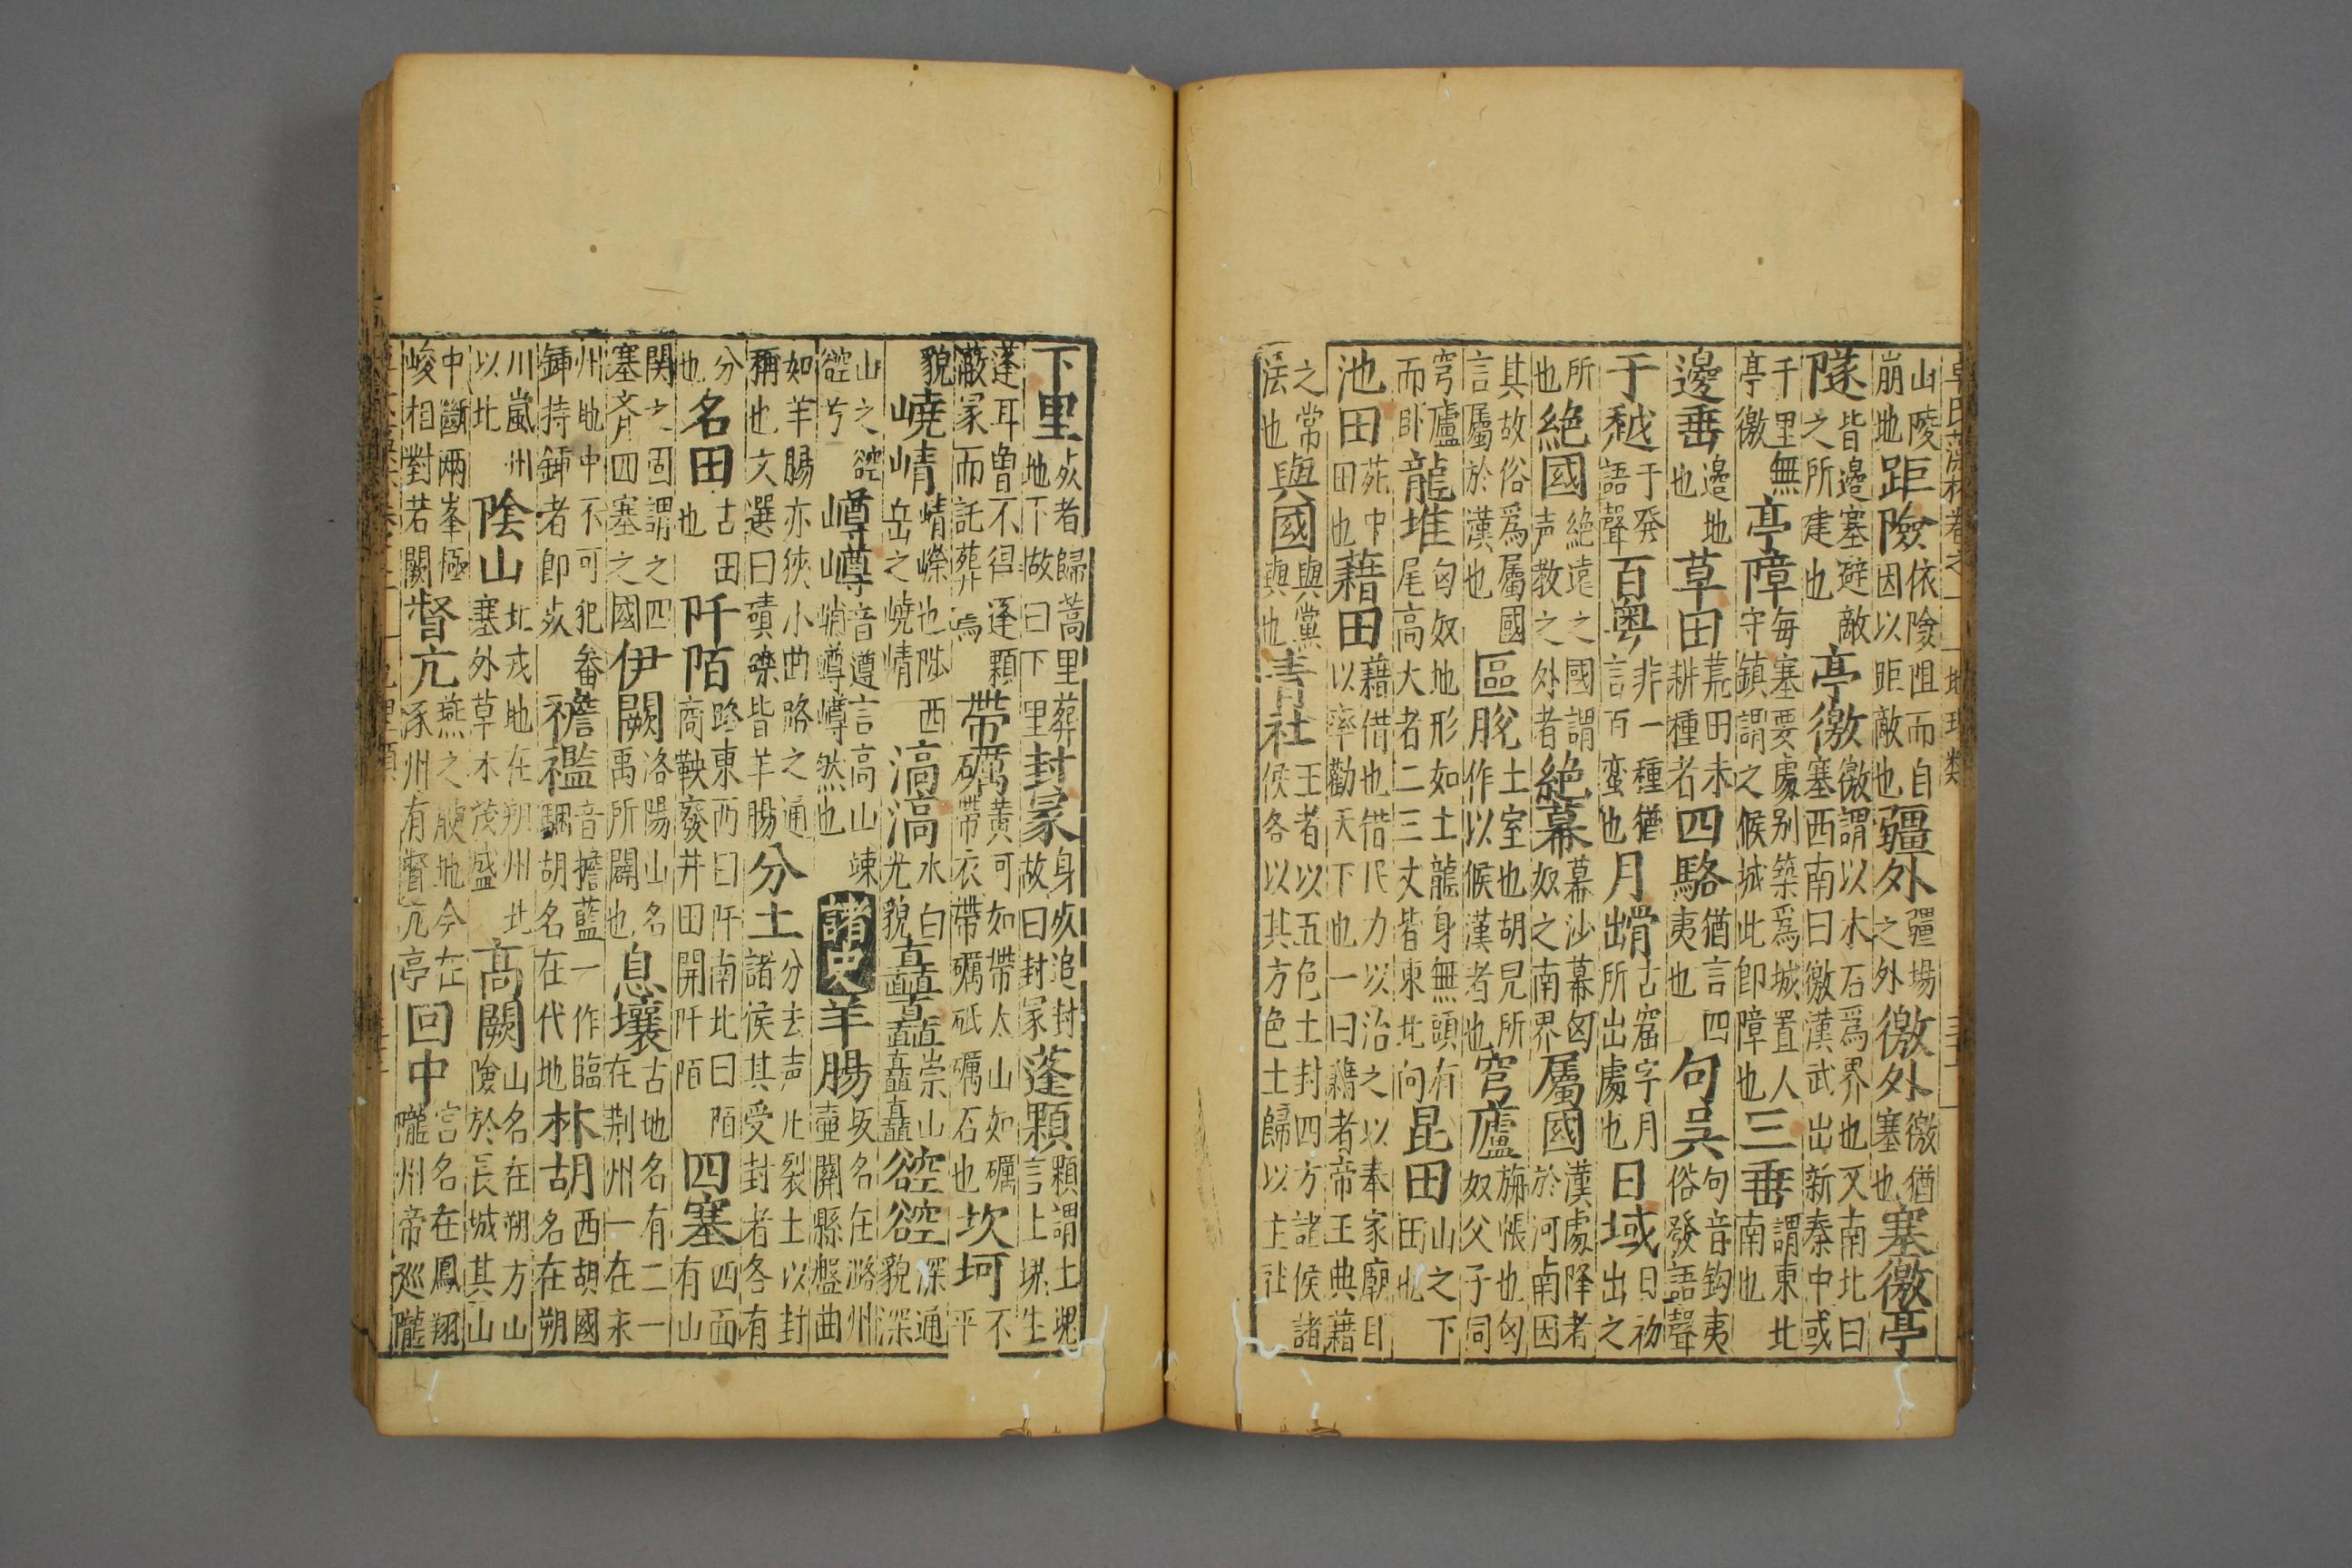 卓氏藻林卷之一 地理類
山陵崩地距險依險阻而自因以距敵也疆外疆場之外徼外徼猶塞也塞徼亭
隧皆邊塞避敵之所建也亭徼徼謂以木石爲界也又南北曰塞西南曰徼漢武出新秦中或
千里無亭徼亭障每塞要處别築爲城置人守鎮謂之候城此即障也三垂謂東北南也
邊垂邊地也草田荒田未耕種者四駱猶言四夷也句吳句音鈎夷俗發語聲
于越于發語聲百粤非一種猶言百蛮也月古窟字月所出處也日域日初出之
所也絶國絶遠之國謂声教之外者絶幕幕沙幕匈奴之南界屬國漢處降者於河南因
其故俗爲屬國言屬於漢也區脫土室也胡兒所作以候漢者也穹廬旃帳也匈奴父子同
穹廬而卧龍堆匈奴地形如土龍身無頭有尾高大者二三丈皆東北向昆田山之下田也
池田苑中田也藉田藉借也借民力以治之以奉家廟且以率勸天下也一曰藉者帝王典藉
之常法也與國與黨與也青社王者以五色土封四方諸侯諸侯各以其方色土歸以主社
下里死者歸蒿里葬地下故曰下里封冢身死追封故曰封冢蓬顆顆謂土塊言上塊生
蓬耳曾不得蓬顆蔽冢而託葬焉帶礪黄河如帶太山如礪帶衣帶礪砥礪石也坎坷不平
貌嶢崝崝嶸也陗西岳之嶢崝滈滈水白光貌矗矗崇山矗矗谾谾深通貌深
山之谾谾兮嶟嶟音遵言高山竦峭嶟嶟然也諸史羊腸坂名在潞州壺關縣盤曲
如羊腸亦狹小曲路之通稱也文選曰磧礫皆羊腸分土分去声凡裂土以封諸侯其受封者各有
分也名田古田也阡陌路東西曰阡南北曰陌商鞅廢井田開阡陌四塞四面有山
関之固謂之四塞斉四塞之國伊闕洛陽山名禹所闢也息壤古地名有二一在荆州一在永
州地中不可犯畚鍤持鍤者即死襜襤音擔藍一作臨駰胡名在代地林胡西胡國名在朔
川嵐州以北陰山北戎地在朔州北塞外草木茂盛高闕山名在朔方山險於長城其山
中斷兩峯極峻相對若闕督亢燕之膄地今在涿州有督亢亭回中宫名在鳳翔隴州帝巡隴